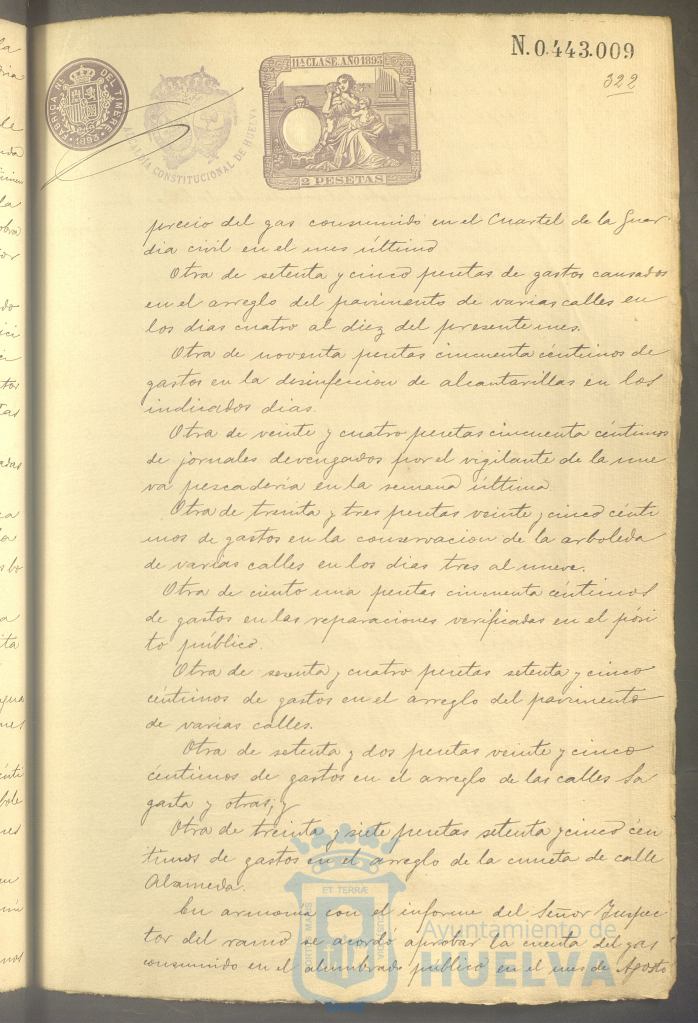 N.0.443.009
322
11ª CLASE. AÑO 1893
2 PESETAS
FÁBRICA Nº DEL TIMBRE
1893
ALCALDÍA CONSTITUCIONAL DE HUELVA
precio del gas consumido en el Cuartel de la Guar-
dia civil en el mes último
Otra de setenta y cinco pesetas de gastos causados
en el arreglo del pavimento de varias calles en
los dias cuatro al diez del presente mes.
Otra de noventa pesetas cincuenta céntimos de
gastos en la desinfeccion de alcantarillas en los
indicados dias.
Otra de veinte y cuatro pesetas cincuenta céntimos
de jornales devengados por el vigilante de la nue
va pescaderia en la semana última
Otra de treinta y tres pesetas veinte y cinco centi
mos de gastos en la conservacion de la arboleda
de varias calles en los dias tres al nueve.
Otra de ciento una pesetas cincuenta céntimos
de gastos en las reparaciones verificadas en el pósi
to público.
Otra de sesenta y cuatro pesetas setenta y cinco
céntimos de gastos en el arreglo del pavimento
de varias calles.
Otra de setenta y dos pesetas veinte y cinco
céntimos de gastos en el arreglo de las calles Sa
gasta y otras; y
Otra de treinta y siete pesetas setenta y cinco cén
timos de gastos en el arreglo de la cuneta de calle
Alameda.
En armonia con el informe del Señor Inspec-
tor del ramo se acordó aprobar la cuenta del gas
consumido en el alumbrado público en el mes de Agosto
ET TERRÆ
PORTUS MARIS
CUSTODIA
Ayuntamiento de
HUELVA